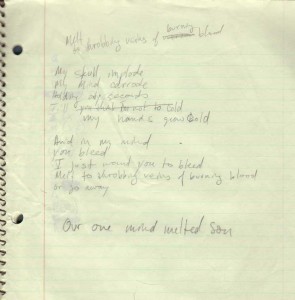 Melt
to throbbing veins of burning blood
My skull implode
My mind corrode
I'll
my hands grow cold
And in my mind
you bleed
I just want you to bleed
Melt to throbbing veins of burning blood
or go away
Our one mind melted son